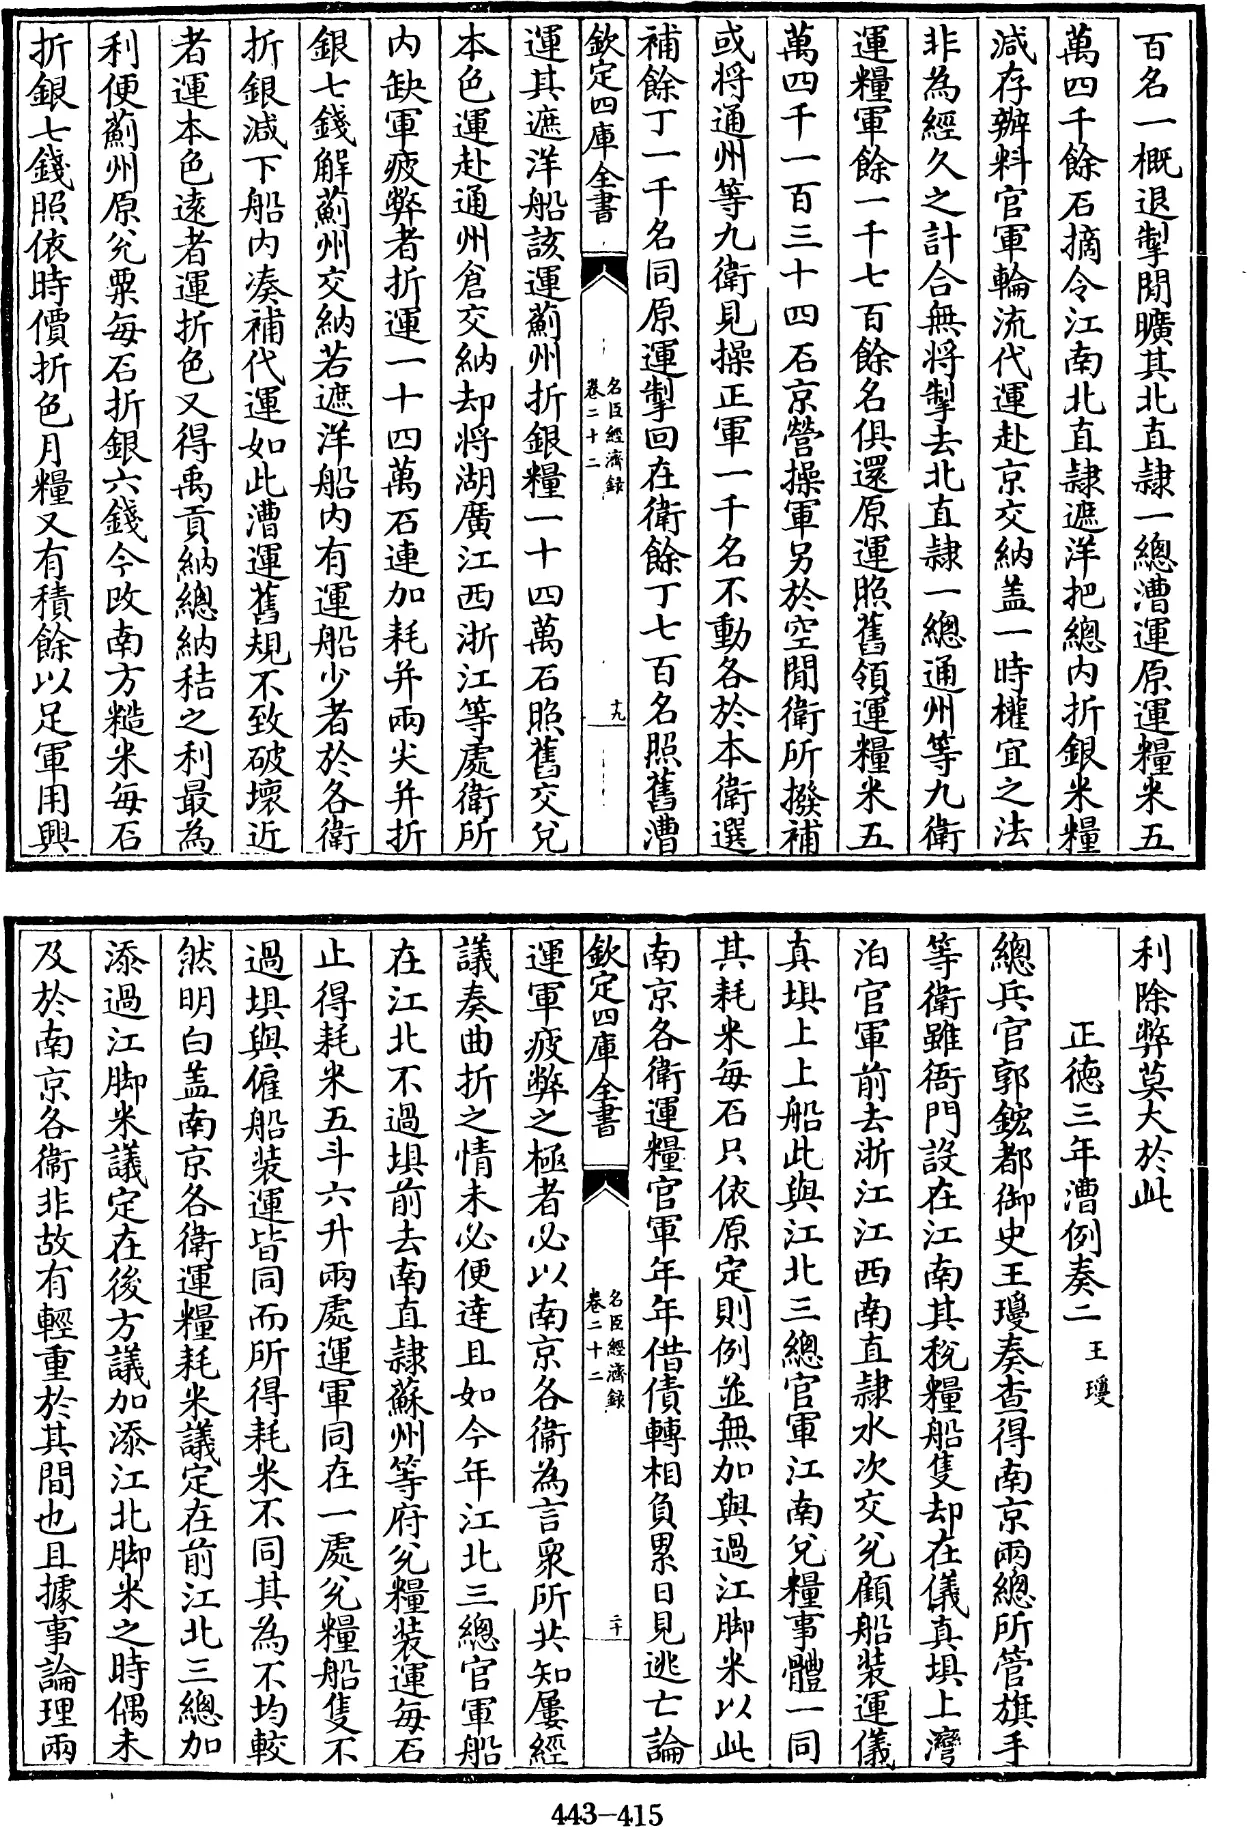 百名一概退掣閒曠其北直隷一總漕運原運糧米五
萬四千餘石摘令江南北直隷遮洋把總内折銀米糧
减存辦料官軍輪流代運赴京交納盖一時權宜之法
非為經久之計合無將掣去北直隷一總通州等九衛
運糧軍餘一千七百餘名俱還原運照舊領運糧米五
萬四千一百三十四石京營操軍另於空閒衛所撥補
或將通州等九衛見操正軍一千名不動各於本衛選
補餘丁一千名同原運掣回在衛餘丁七百名照舊漕
欽定四庫全書
名臣經濟録
卷二十二
十九
運其遮洋船該運薊州折銀糧一十四萬石照舊交兌
本色運赴通州倉交納却將湖廣江西浙江等處衛所
内缺軍疲弊者折運一十四萬石連加耗并兩尖并折
銀七錢解薊州交納若遮洋船内有運船少者於各衛
折銀减下船内凑補代運如此漕運舊規不致破壞近
者運本色逺者運折色又得禹貢納總納秸之利最為
利便薊州原兊粟每石折銀六錢今改南方糙米每石
折銀七錢照依時價折色月糧又有積餘以足軍用興
利除弊莫大於此
正德三年漕例奏二　王瓊
總兵官郭鋐都御史王瓊奏查得南京兩總所管旗手
等衛雖衙門設在江南其税糧船隻却在儀真埧上灣
泊官軍前去浙江江西南直隷水次交兊顧船装運儀
真埧上上船此與江北三總官軍江南兌糧事體一同
其耗米每石只依原定則例並無加與過江脚米以此
南京各衛運糧官軍年年借債轉相負累日見逃亡論
欽定四庫全書
名臣經濟録
卷二十二
二十
運軍疲弊之極者必以南京各衛為言衆所共知屢經
議奏曲折之情未必便達且如今年江北三總官軍船
在江北不過埧前去南直隷蘇州等府兊糧装運每石
止得耗米五斗六升兩處運軍同在一處兊糧船隻不
過埧與僱船装運皆同而所得耗米不同其為不均較
然明白盖南京各衛運糧耗米議定在前江北三總加
添過江脚米議定在後方議加添江北脚米之時偶未
及於南京各衛非故有輕重於其間也且據事論理兩
443-415